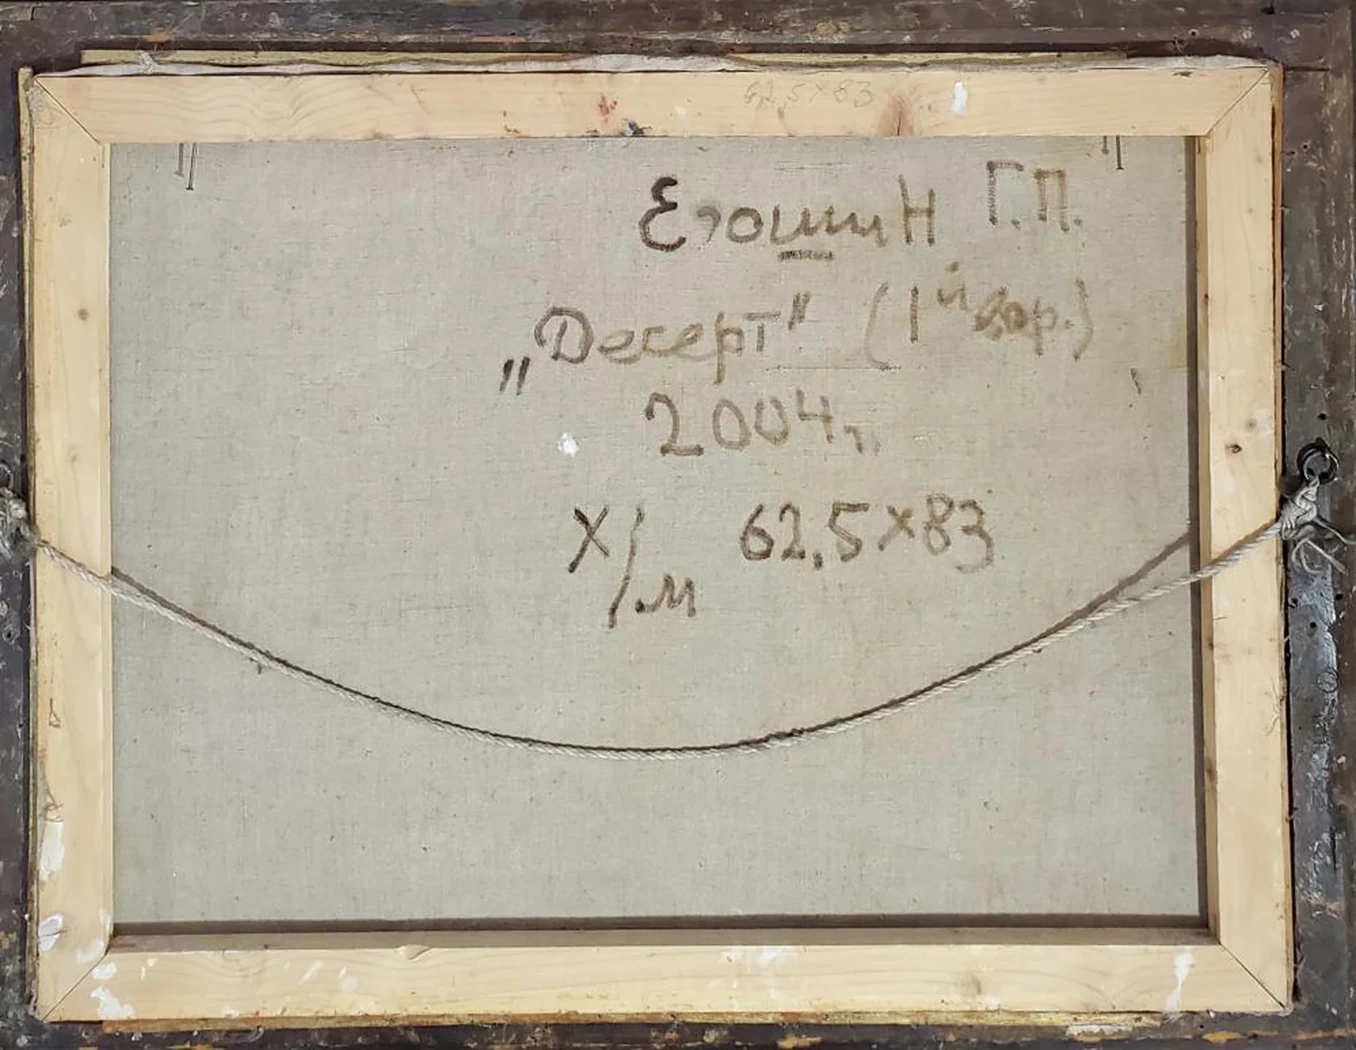 62,5×83
Егошин Г.П.
„Десерт" (1й вар.)
2004г.
Х/м 62,5×83